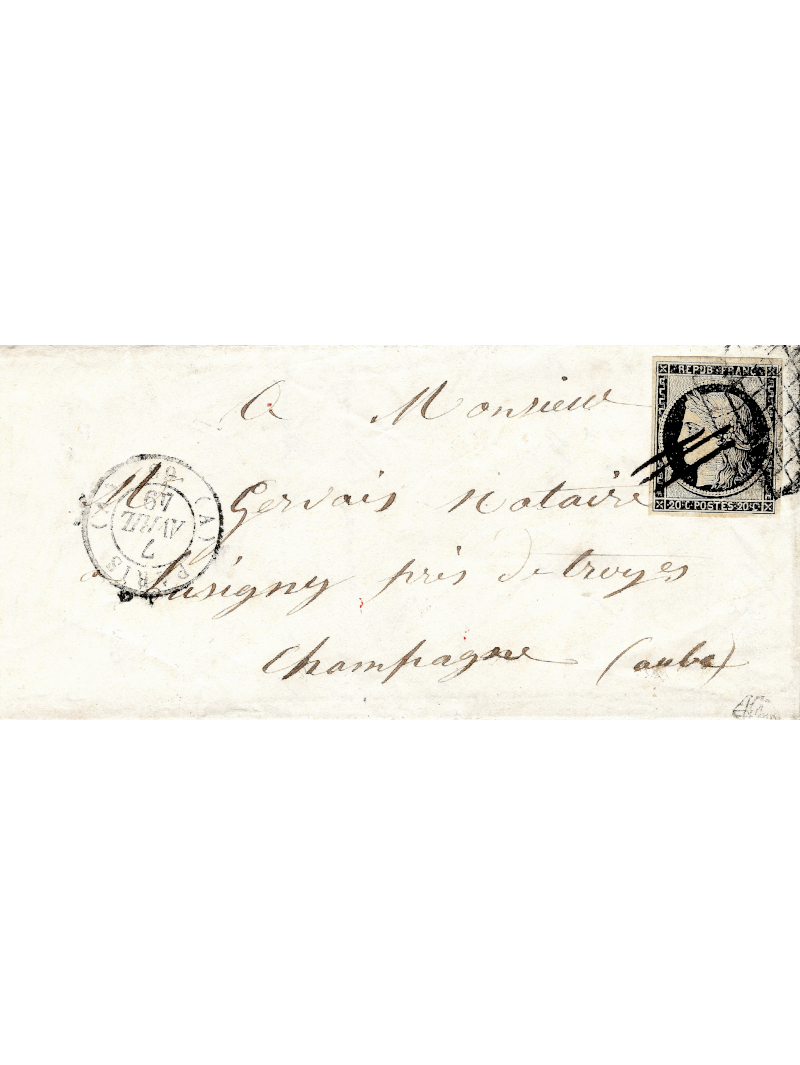 REPUB FRANC
20 C POSTES 20 C
A Monsieur
Mr Gervais Notaire
a Lusigny près de troyes
Champagne (aube)
PARIS (A)
7
AVRIL
49